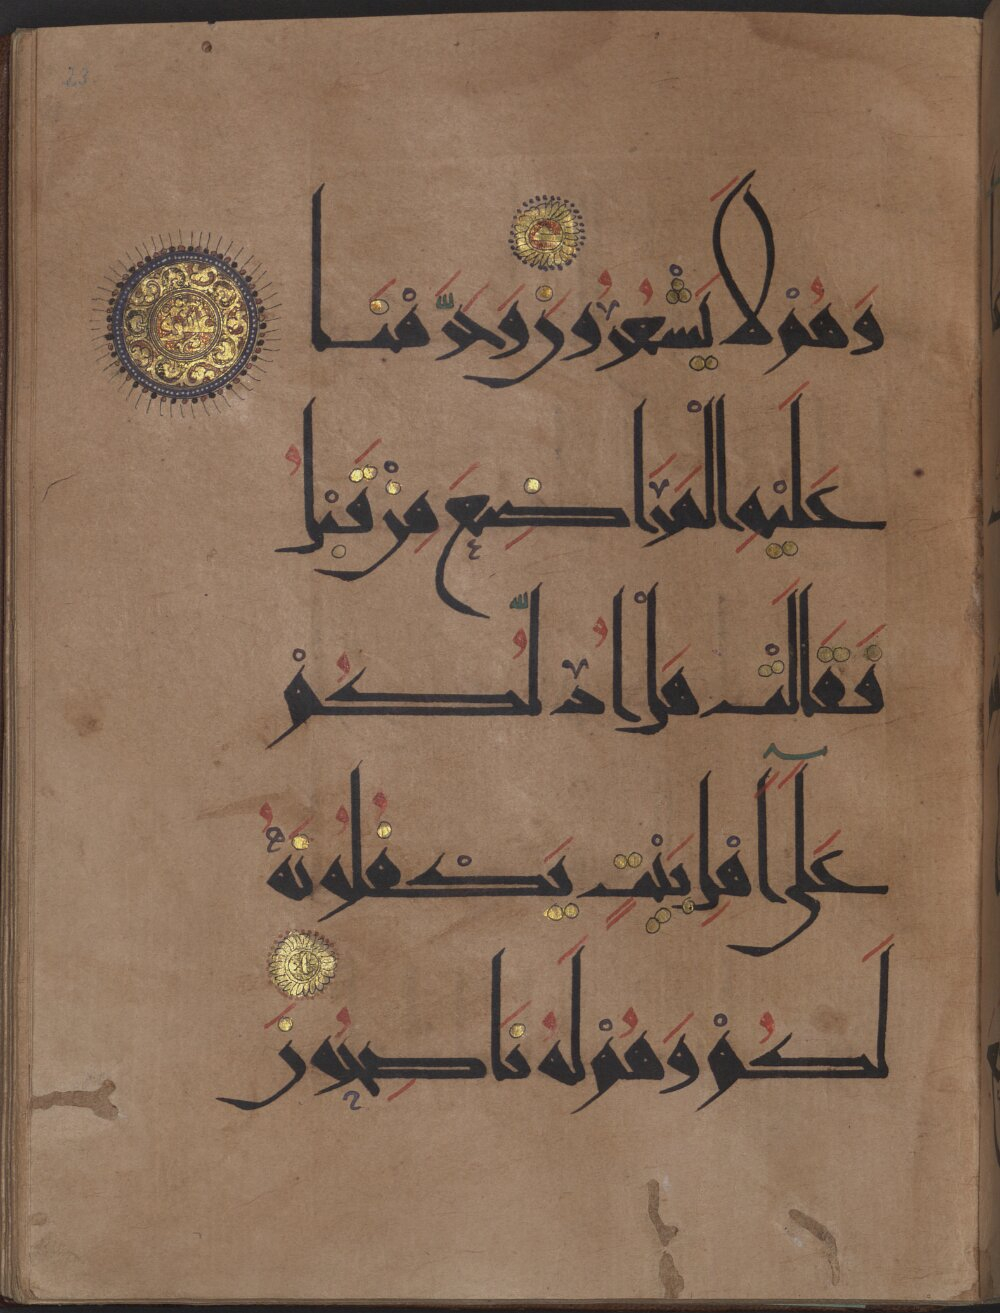 23
وَهُمْ لَا يَشْعُرُونَ وَحَرَّمْنَا
عَلَيْهِ الْمَرَاضِعَ مِنْ قَبْلُ
فَقَالَتْ هَلْ أَدُلُّكُمْ
عَلَىٰ أَهْلِ بَيْتٍ يَكْفُلُونَهُ
لَكُمْ وَهُمْ لَهُ نَاصِحُونَ